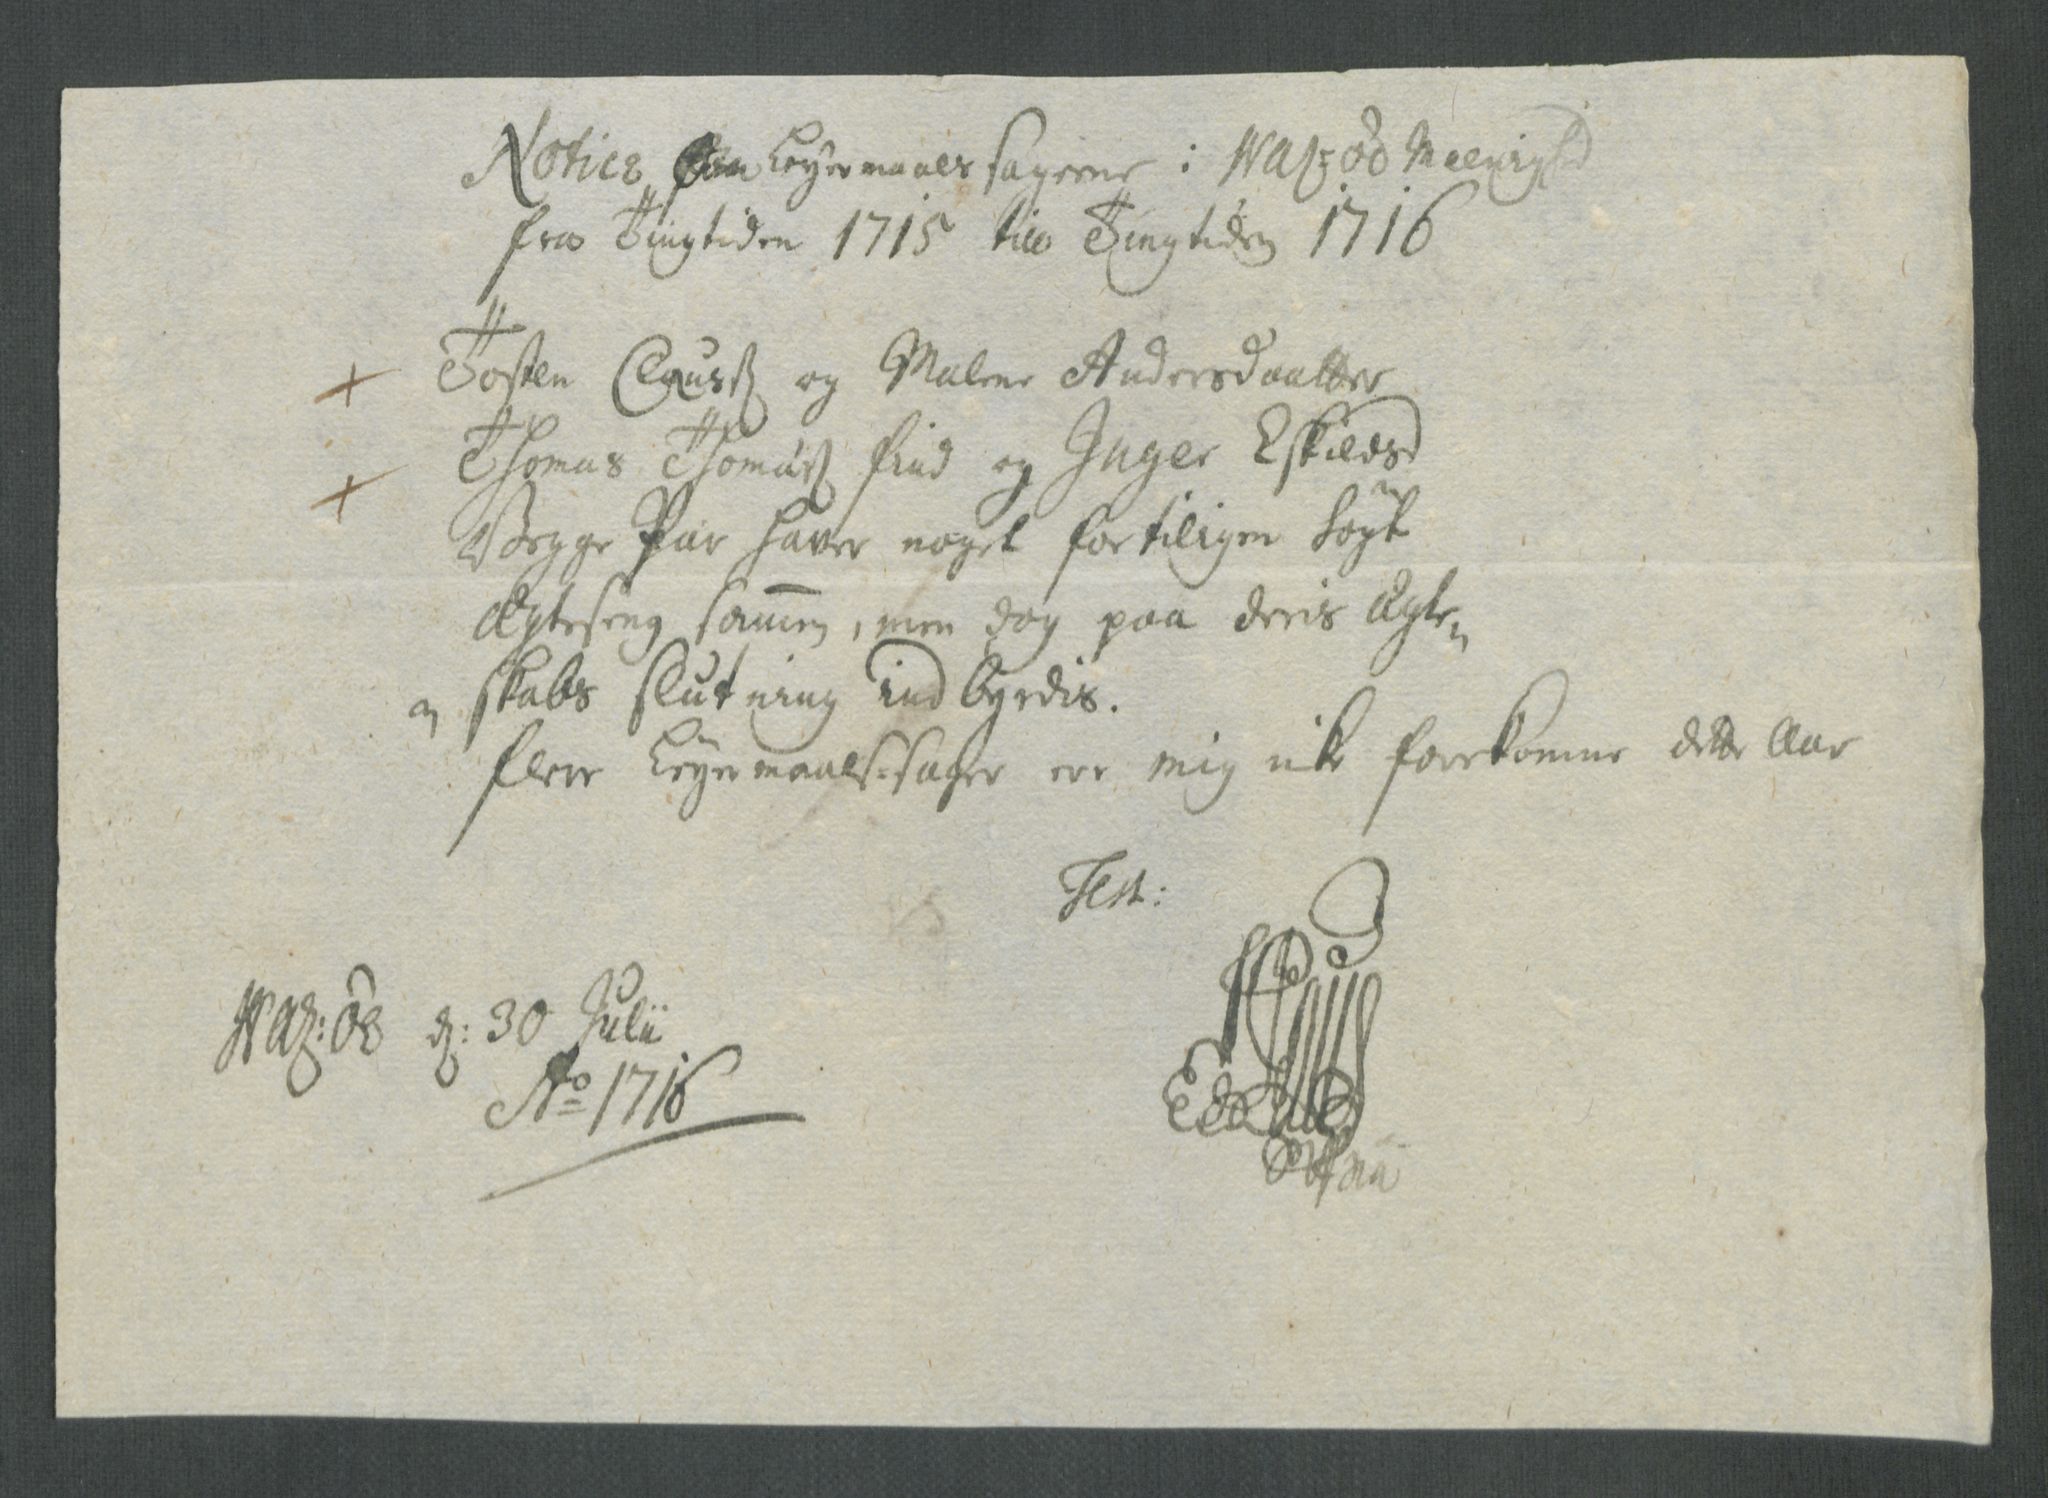 Notice om Leyermaals sagerne i Waßöe Meenighd
fra Tingtiden 1715 till Tingtiden 1716
Tosten Clausß og Malene Andersdaatter
Thomas Thomasß find og Inger Eskildsd
Begge Par haver noget fortiligen søgt
Ægteseng sammen, men dog paa deris Ægte-
skabs slutning indbyrdis.
flere Leyermaals-sager ere mig icke forekomne dette Aar
Test:
Waß:öe d: 30 Julii
Ao 1716